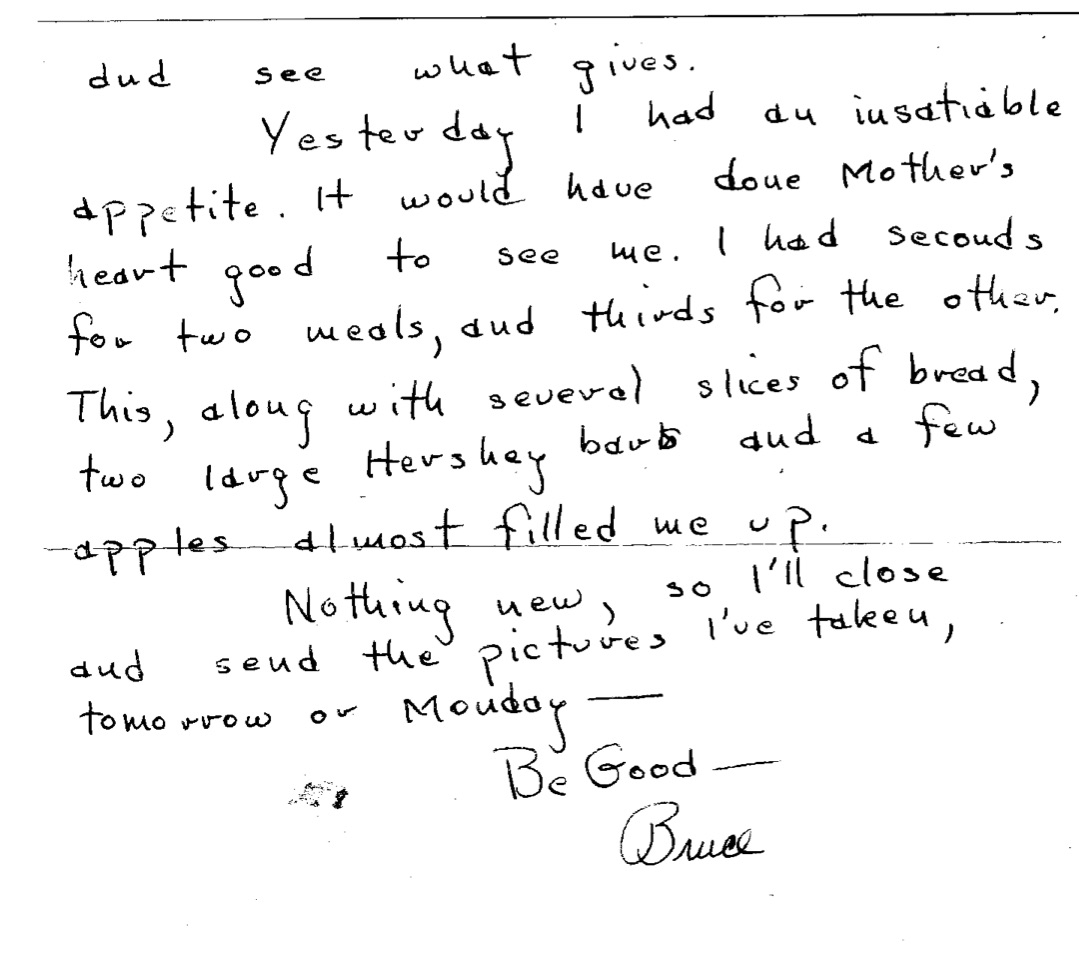 and see what gives.
Yesterday I had an insatiable
appetite. It would have done Mother's
heart good to see me. I had seconds
for two meals, and thirds for the other.
This, along with several slices of bread,
two large Hershey bars and a few
apples almost filled me up.
Nothing new, so I'll close
and send the pictures I've taken,
tomorrow or Monday —
Be Good —
Bruce